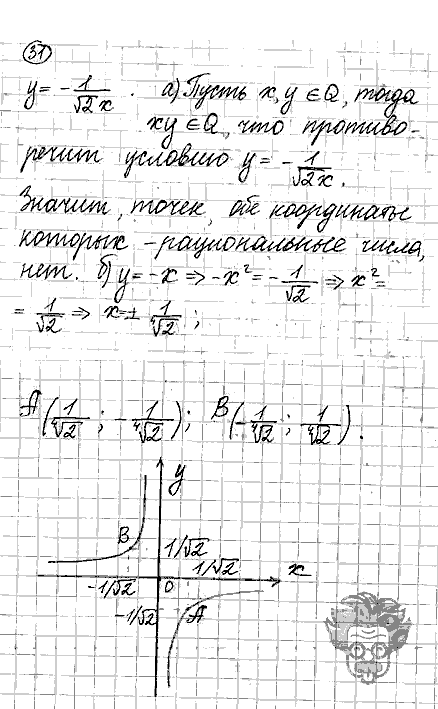 31
y = -1/(√2 x) . а) Пусть x, y ∈ Q, тогда
xy ∈ Q, что противо-
речит условию y = -1/(√2x).
Значит, точек, обе координаты
которых – рациональные числа,
нет. б) y = -x ⇒ -x² = -1/√2 ⇒ x² =
= 1/√2 ⇒ x = ± 1/∜2 ;
A(1/∜2 ; -1/∜2); B(-1/∜2 ; 1/∜2).
y
B
1/√2
1/√2 x
-1/√2 0
-1/√2 A